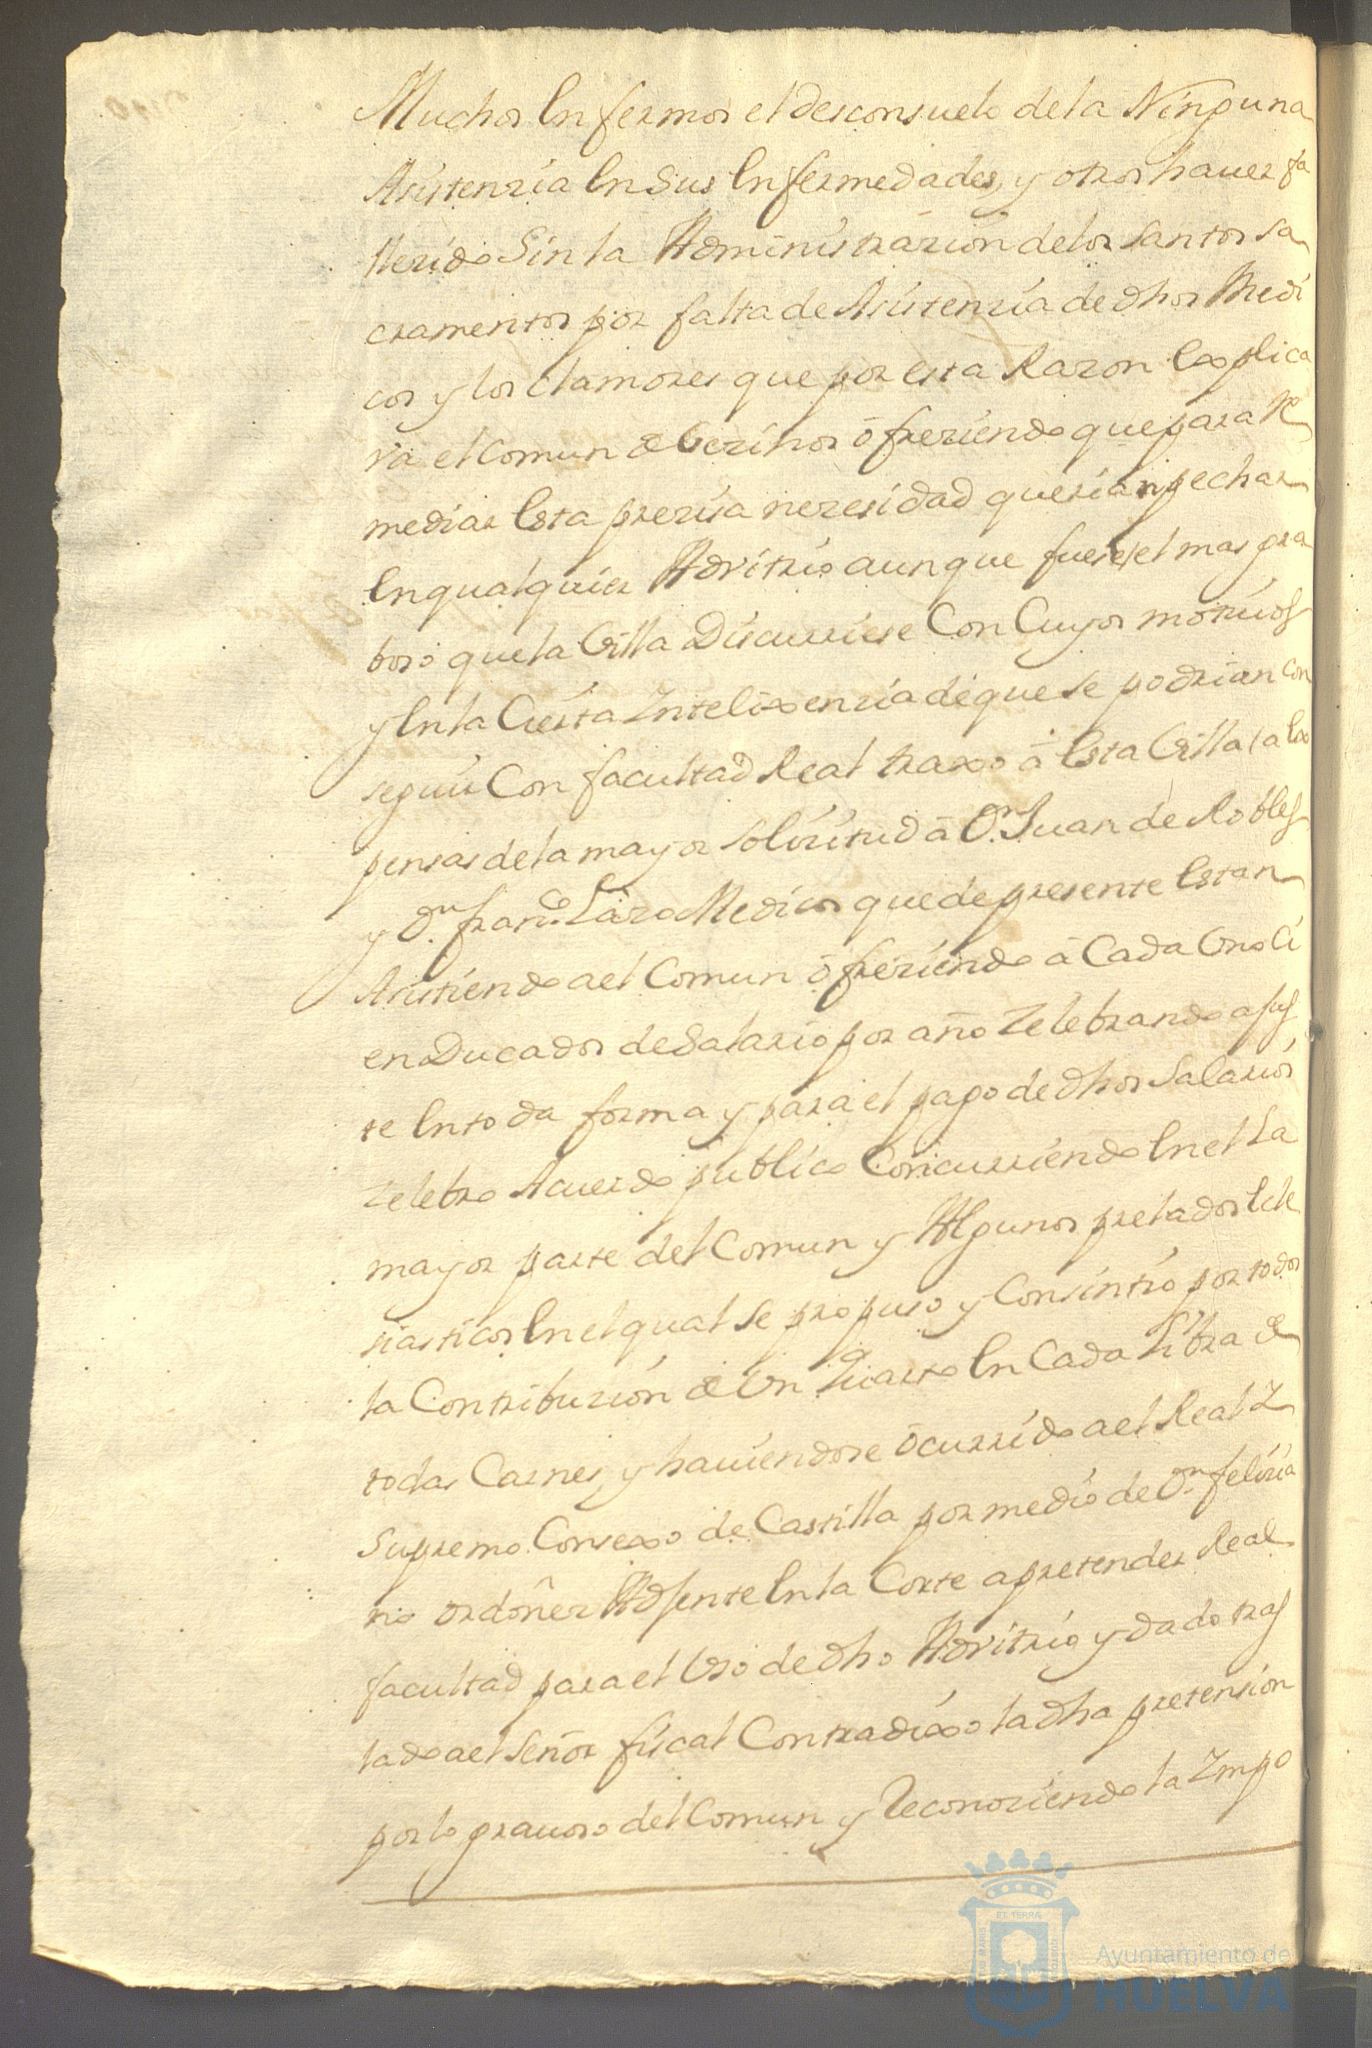 Muchos Enfermos el desconsuelo de la Ninguna
Asistenzia En Sus Enfermedades, y otros hauer fa
llezido Sin la Administrazion de los Santos Sa
cramentos por falta de Asistenzia de dhos Medi
cos y los clamores que por esta Razon Explica
va el Comun de Vezinos ofreziendo que para Re
mediar Esta preziza nezesidad querian pechar
En qualquier Advitrio aunque fuese el mas gra
boso que la Villa Discurriese Con Cuyos motiuos
y En la Cierta Intelixenzia de que se podrian con
seguir Con facultad Real traxo a Esta Villa a Ex
pensas de la mayor Solizitud a Dn. Juan de Robles
y Dn. Franco. Lazo Medicos que de presente Estan
Asistiendo a el Comun ofreziendo a Cada Uno Ci
en Ducados de Salario por año Zelebrando ajus
te En toda forma y para el pago de dhos Salarios
Zelebro Acuerdo publico Concurriendo En el La
mayor parte del Comun y Algunos prelados Ecle
siasticos En el qual se propuso y Consintio por todos
la Contribuzion de Un quarto En Cada Libra de
todas Carnes, y hauiendose ocurrido a el Real I
Supremo Consexo de Castilla por medio de Dn. Felizia
no ordoñez Ajente En la Corte a pretender Real
facultad para el Uso de dho Advitrio y dado tras
lado a el Señor fiscal Contradixo la dha pretension
por lo grauoso del Comun y Reconoziendo la Impo
Ayuntamiento de
HUELVA